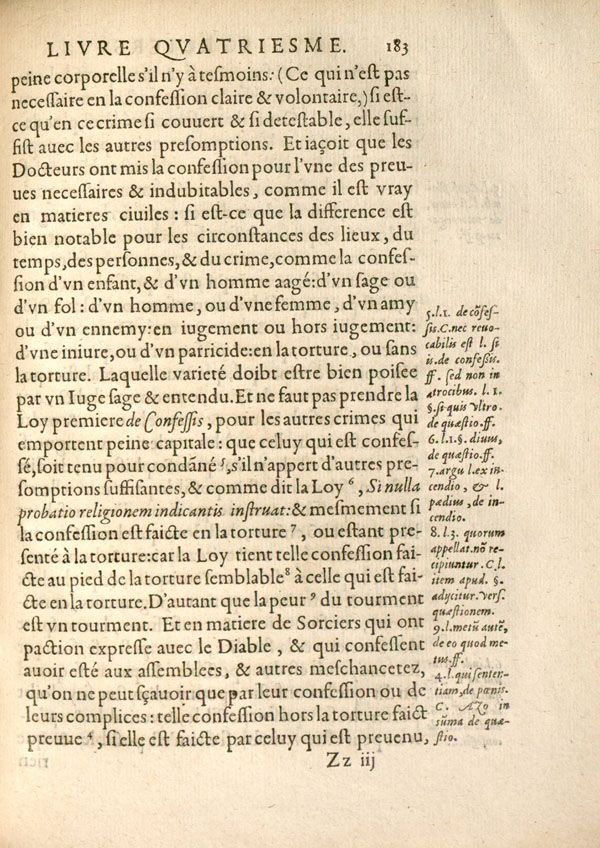 LIVRE QVATRIESME. 183
peine corporelle s'il n'y à tesmoins: (Ce qui n'est pas
necessaire en la confession claire & volontaire,) si est-
ce qu'en ce crime si couuert & si detestable, elle suf-
fist auec les autres presomptions. Et iaçoit que les
Docteurs ont mis la confession pour l'vne des preu-
ues necessaires & indubitables, comme il est vray
en matieres ciuiles : si est-ce que la difference est
bien notable pour les circonstances des lieux, du
temps, des personnes, & du crime, comme la confes-
sion d'vn enfant, & d'vn homme aagé: d'vn sage ou
d'vn fol : d'vn homme, ou d'vne femme, d'vn amy
ou d'vn ennemy: en iugement ou hors iugement:
d'vne iniure, ou d'vn parricide: en la torture, ou sans
la torture. Laquelle varieté doibt estre bien poisee
par vn Iuge sage & entendu. Et ne faut pas prendre la
Loy premiere de Confessis, pour les autres crimes qui
emportent peine capitale : que celuy qui est confes-
sé, soit tenu pour condãné 5, s'il n'appert d'autres pre-
somptions suffisantes, & comme dit la Loy 6, Si nulla
probatio religionem indicantis instruat: & mesmement si
la confession est faicte en la torture 7, ou estant pre-
senté à la torture: car la Loy tient telle confession fai-
cte au pied de la torture semblable 8 à celle qui est fai-
cte en la torture. D'autant que la peur 9 du tourment
est vn tourment. Et en matiere de Sorciers qui ont
paction expresse auec le Diable, & qui confessent
auoir esté aux assemblees, & autres meschancetez,
qu'on ne peut sçauoir que par leur confession ou de
leurs complices : telle confession hors la torture faict
preuue 4, si elle est faicte par celuy qui est preuenu,
Zz iij
5. l. 1. de cõfes-
sis. C. nec reuo-
cabilis est l. si
is. de confessis.
ff. sed non in
atrocibus. l. 1
§. si quis vltro.
de quæstio. ff.
6. l. 1. §. diuus,
de quæstio. ff.
7. argu l. ex in-
cendio, & l.
pædius, de in-
cendio.
8. l. 3. quorum
appellat. nõ re-
cipiuntur. C. l.
item apud. §.
adycitur. vers.
quæstionem.
9. l. metũ autẽ,
de eo quod me-
tus. ff.
4. l. qui senten-
tiam, de pœnis.
C. Azo in
sũma de quæ-
stio.